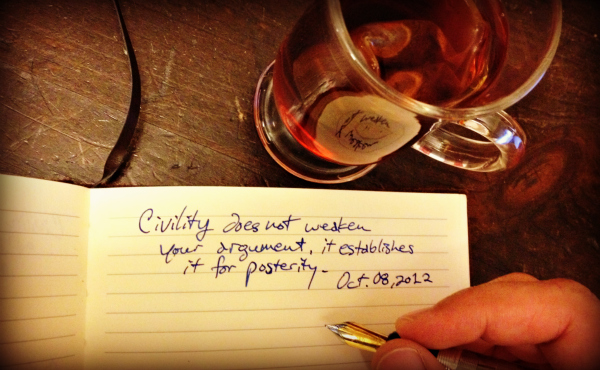 Civility does not weaken
your argument, it establishes
it for posterity.
Oct. 08, 2012